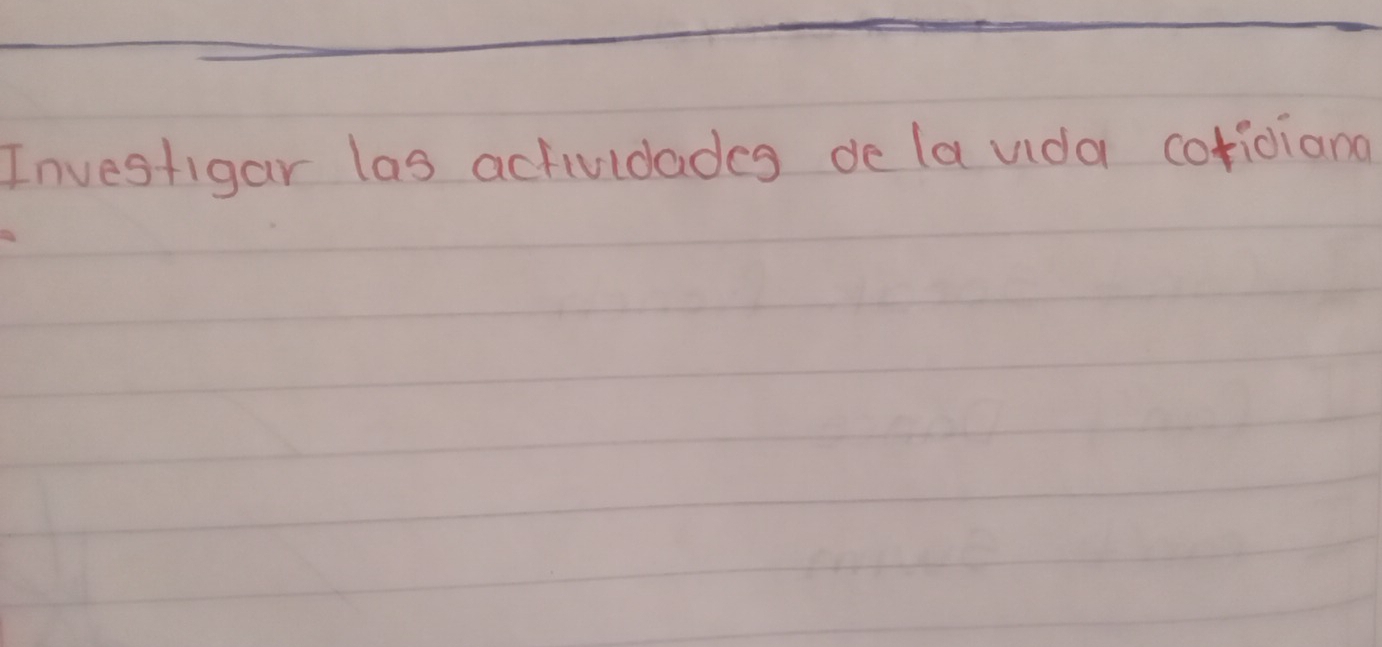 Investigar las actividades de la vida cotidiana